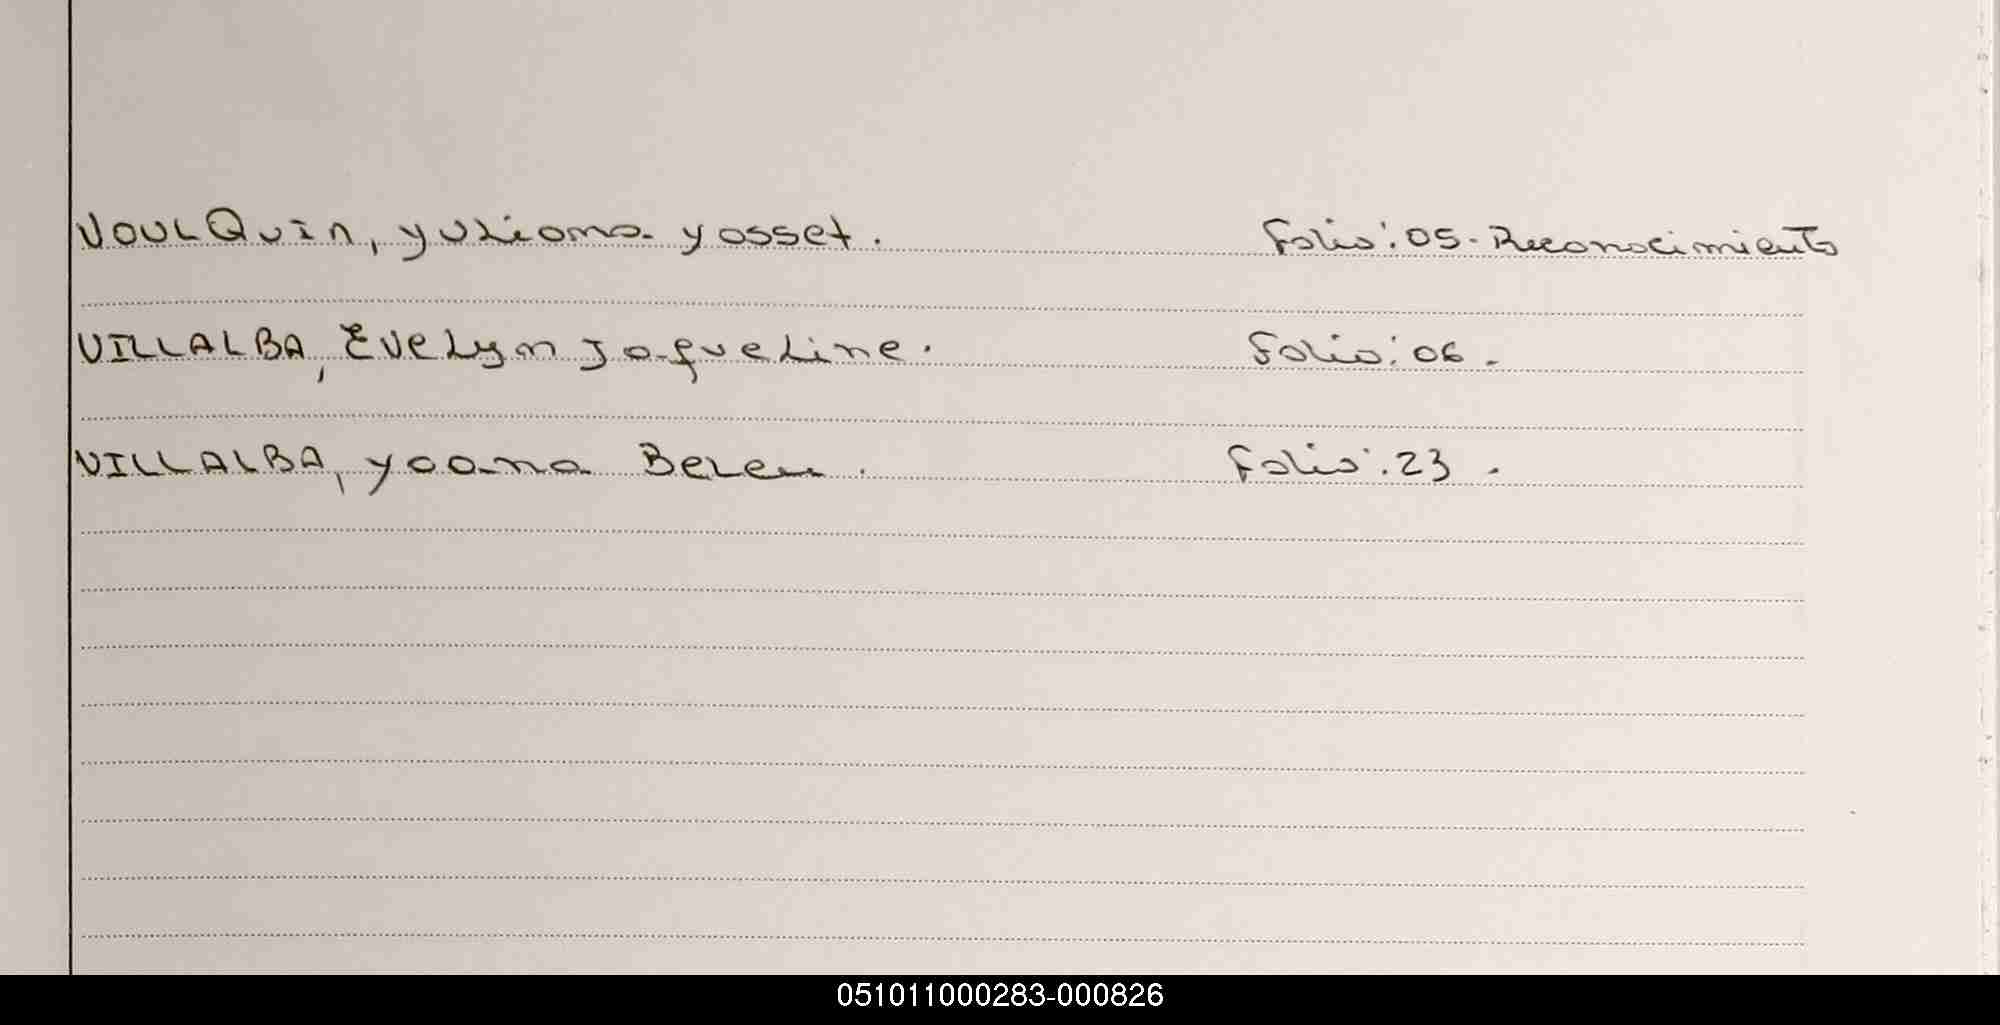 VOULQUIN, yuliana yosset. Folio: 05. Reconocimiento
VILLALBA, Evelyn Jaqueline. Folio: 06.
VILLALBA, yoana Belen. Folio: 23.
051011000283-000826